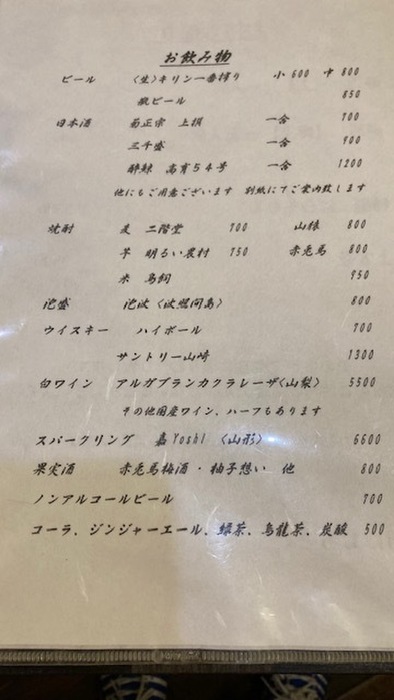 お飲み物
ビール 〈生〉キリン一番搾り 小 600 中 800
瓶ビール 850
日本酒 菊正宗 上撰 一合 700
三千盛 一合 900
酔鯨 高育54号 一合 1200
他にもご用意ございます 別紙にてご案内致します
焼酎 麦 二階堂 700 山猿 800
芋 明るい農村 750 赤兎馬 800
米 鳥飼 950
泡盛 泡波〈波照間島〉 800
ウイスキー ハイボール 700
サントリー山崎 1300
白ワイン アルガブランカクラレーザ〈山梨〉 5500
その他国産ワイン、ハーフもあります
スパークリング 嘉Yoshi 〈山形〉 6600
果実酒 赤兎馬梅酒・柚子想い 他 800
ノンアルコールビール 700
コーラ、ジンジャーエール、緑茶、烏龍茶、炭酸 500